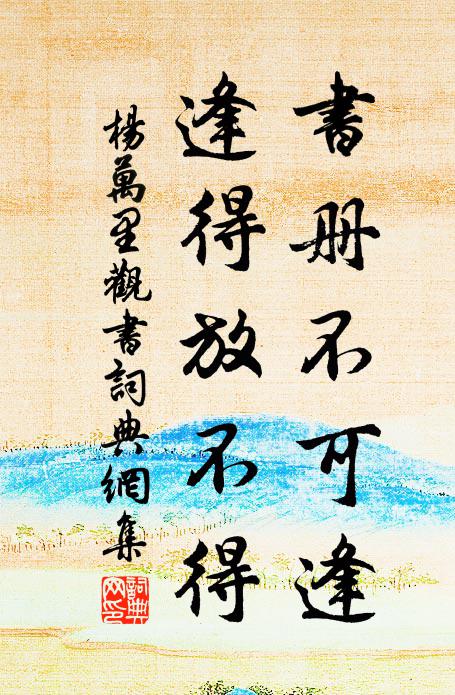 書册不可逢
逢得放不得
楊萬里觀書詞典網集
詞典網印